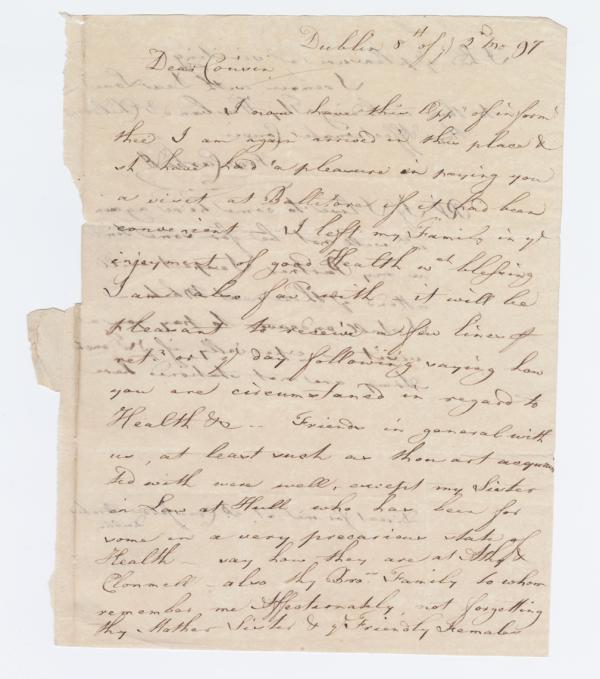 Dublin 8th of 2d mo 97
Dear Cousin
I now have this Opp of inform
thee I am again arrived in this place &
sh have had a pleasure in paying you
a visit at Ballitore if it had been
convenient – I left my Family in ye
injoyment of good Health wch blessing
I am also fav with it will be
pleasant to receive a few lines
or ye day following saying how
you are circumstanced in regard to
Health &c – Friends in general with
us, at least such as thou art acquain
ted with were well, except my Sister
in Law at Hull who has been for
some in a very precarious state of
Health – say how they are at Athy &
Clonmell – also thy Bros Family to whom
remember me Affectionately, not forgetting
thy Mother Sister & ye Friendly Females